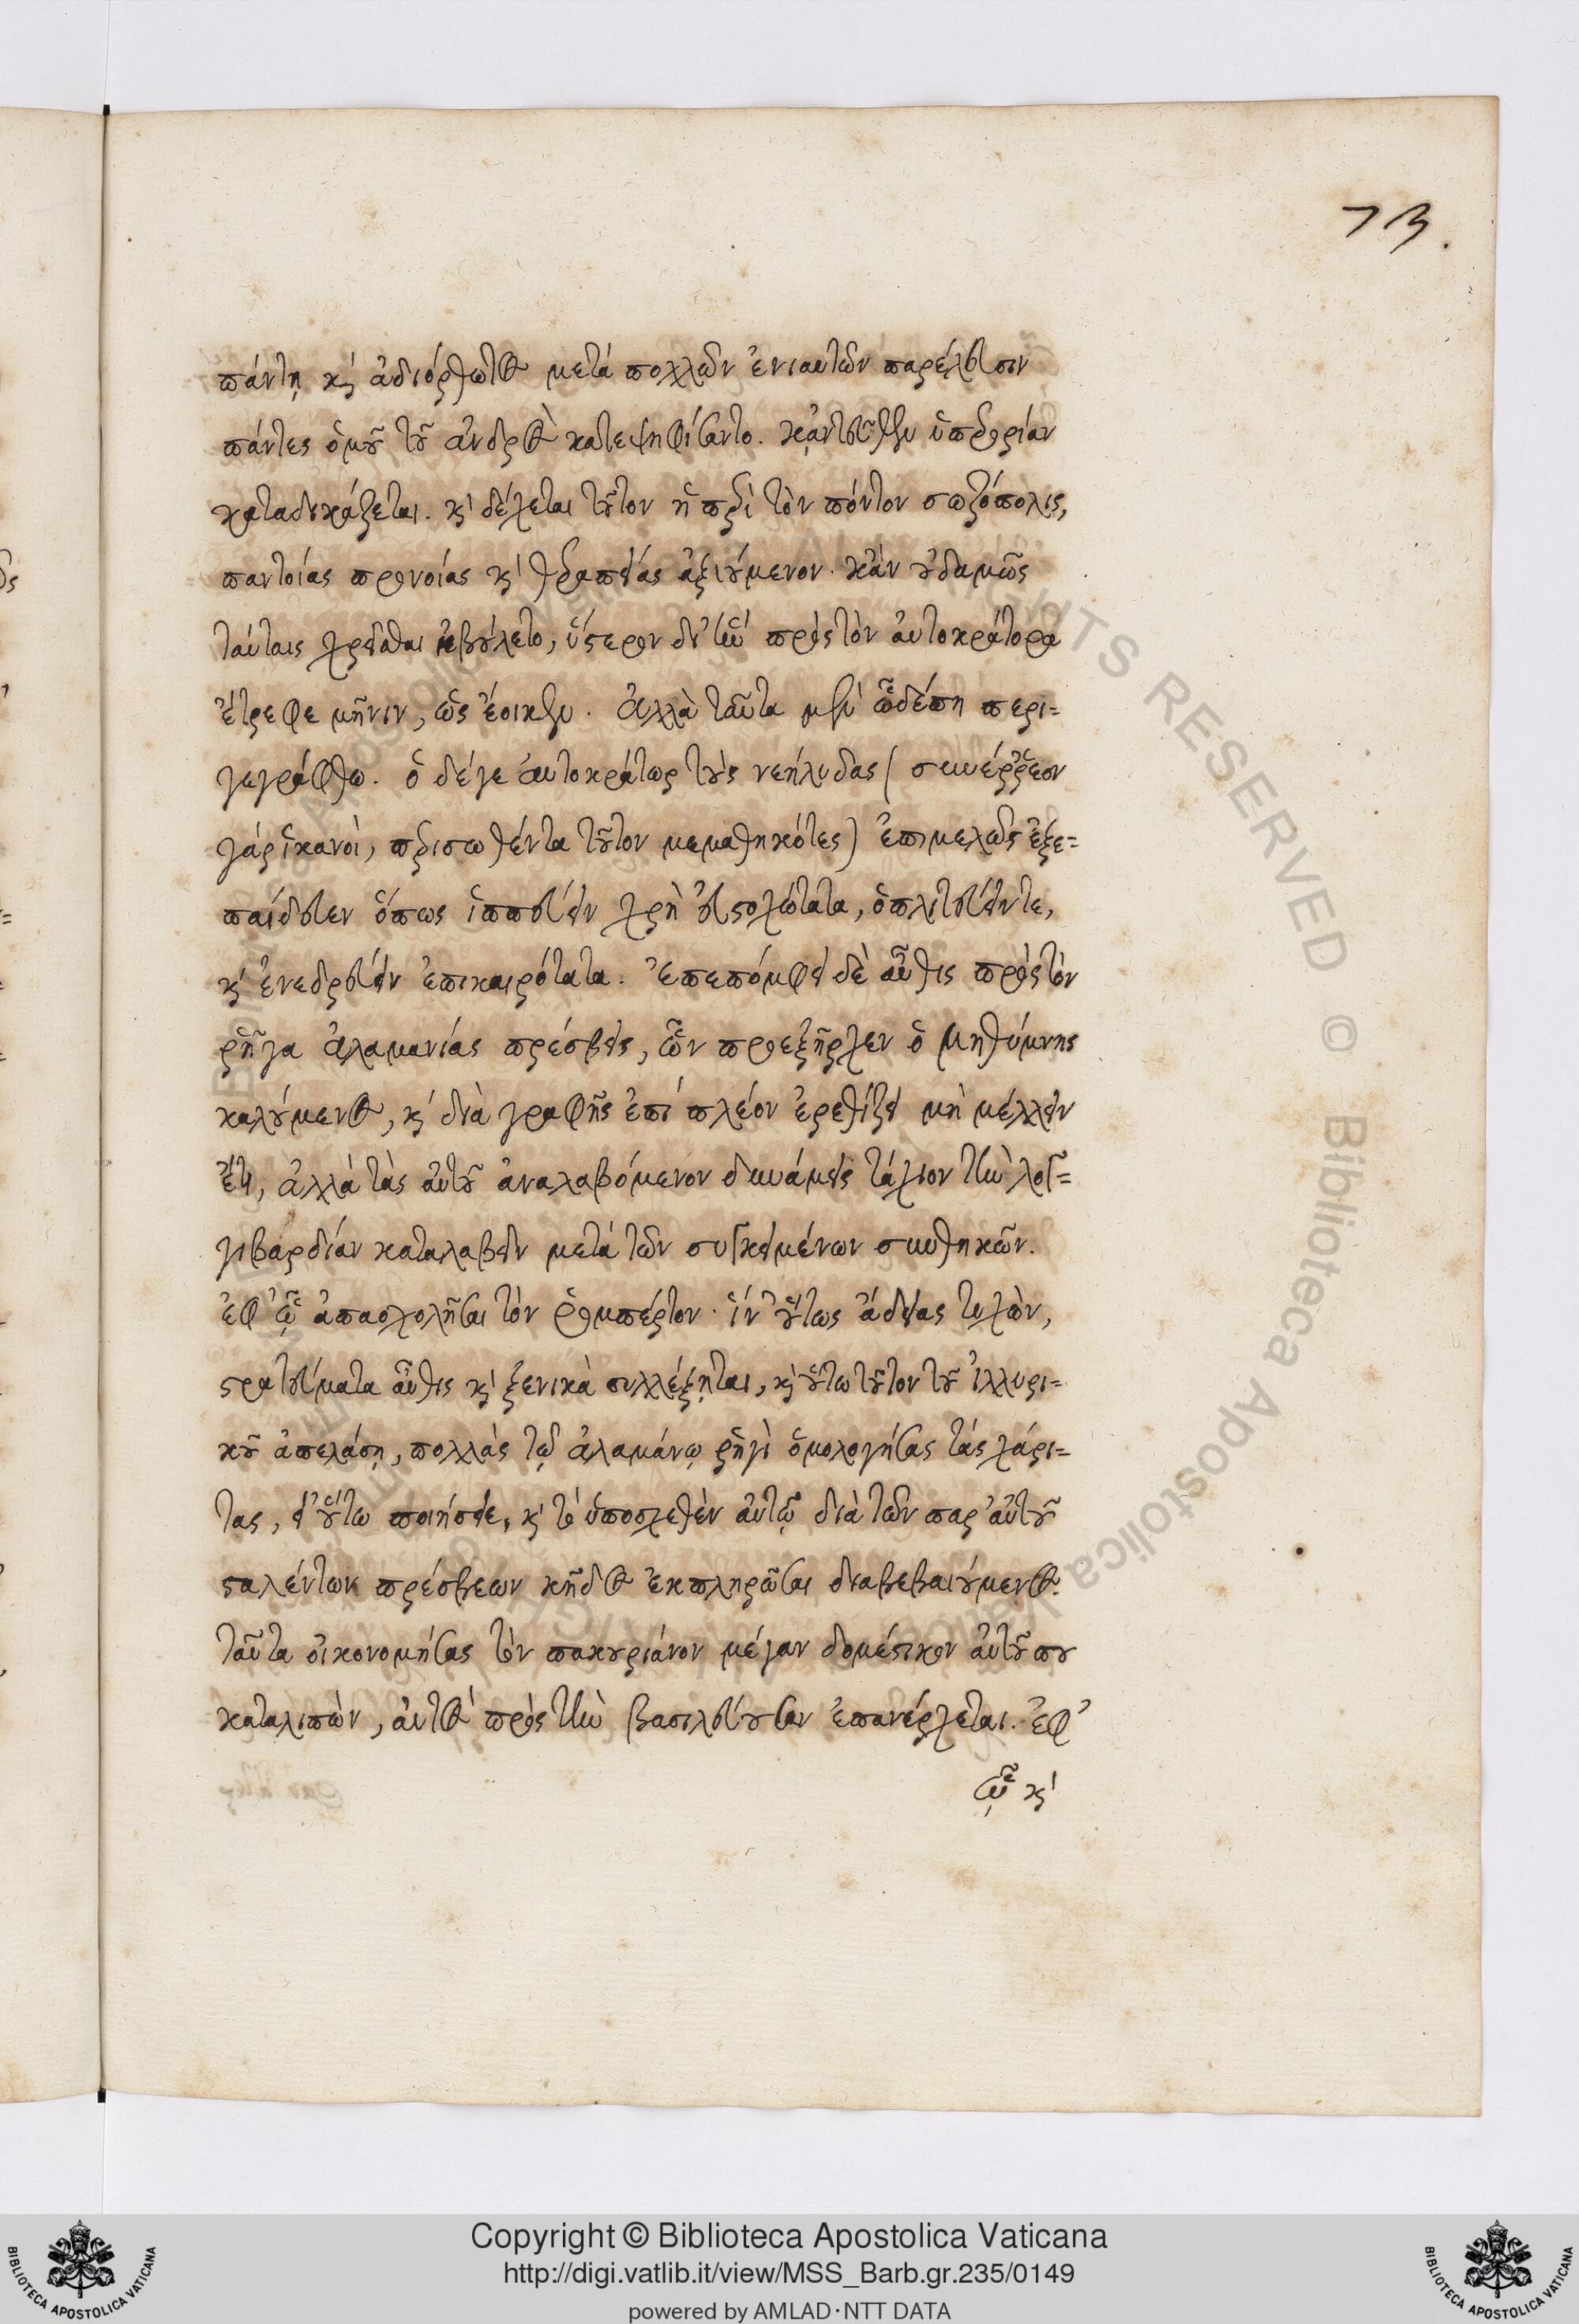 73.
πάντη καὶ ἀδιόρθωτος μετὰ πολλῶν ἐνιαυτῶν παρέλευσιν
πάντες ὁμοῦ τοῦ ἀνδρὸς κατεψηφίσαντο. κἀντεῦθεν ὑπερορίαν
καταδικάζεται. καὶ δέχεται τοῦτον ἡ περὶ τὸν πόντον σωζόπολις,
παντοίας προνοίας καὶ θεραπείας ἀξιούμενον. κἂν οὐδαμῶς
ταύταις χρᾶσθαι ἐβούλετο, ὕστερον δι' ἣν πρὸς τὸν αὐτοκράτορα
ἔτρεφε μῆνιν, ὡς ἔοικεν. ἀλλὰ ταῦτα μὲν ὧδέ πη περι=
γεγράφθω. ὁ δέ γε αὐτοκράτωρ τοὺς νεήλυδας (συνέῤῥεον
γάρ ἱκανοὶ, περισωθέντα τοῦτον μεμαθηκότες) ἐπιμελῶς ἐξε=
παίδευεν ὅπως ἱππεύειν χρὴ εὐστοχώτατα, ὁπλιτεύειν τε,
καὶ ἐνεδρεύειν ἐπικαιρότατα. ἐπεπόμφει δὲ αὖθις πρὸς τὸν
ῥῆγα ἀλαμανίας πρέσβεις, ὧν προεξῆρχεν ὁ μηθύμνης
καλούμενος, καὶ διὰ γραφῆς ἐπὶ πλέον ἐρεθίζει μὴ μέλλειν
ἔτι, ἀλλὰ τὰς αὐτοῦ ἀναλαβόμενον δυνάμεις τάχιον τὴν λογ=
γιβαρδίαν καταλαβεῖν μετὰ τῶν συγκειμένων συνθηκῶν.
ἐφ' ᾧ ἀπασχολῆσαι τὸν ῥομπέρτον. ἵν' οὕτως ἀδείας τυχὼν,
στρατεύματα αὖθις καὶ ξενικὰ συλλέξηται, καὶ οὕτω τοῦτον τοῦ ἰλλυρι=
κοῦ ἀπελάση, πολλὰς τῷ ἀλαμάνῳ ῥηγὶ ὁμολογήσας τὰς χάρι=
τας, εἰ οὕτω ποιήσειε, καὶ τὸ ὑποσχεθὲν αὐτῷ διὰ τῶν παρ' αὐτοῦ
σταλέντων πρέσβεων κῆδος ἐκπληρῶσαι διαβεβαιούμενος.
ταῦτα οἰκονομήσας τὸν πακουριάνον μέγαν δομέστικον αὐτοῦ που
καταλιπὼν, αὐτὸς πρὸς τὴν βασιλεύουσαν ἐπανέρχεται. ἐφ'
ᾧ καὶ
Copyright © Biblioteca Apostolica Vaticana
http://digi.vatlib.it/view/MSS_Barb.gr.235/0149
powered by AMLAD·NTT DATA